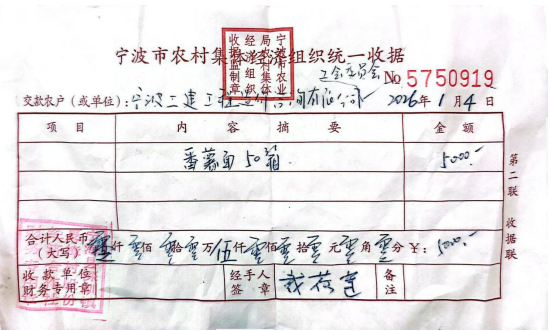 宁波市农村集体经济组织统一收据
宁波市农业局农村集体经济组织收据监制章
工会委员会
No 5750919
交款农户（或单位）：宁波二建工程 有限公司 2026年1月4日
项目 内容摘要 金额
番薯面50箱 5000.-
合计人民币（大写） 零仟零佰零拾零万伍仟零佰零拾零元零角零分 ￥：5000.-
收款单位财务专用章 经手人签章 备注
第二联 收据联